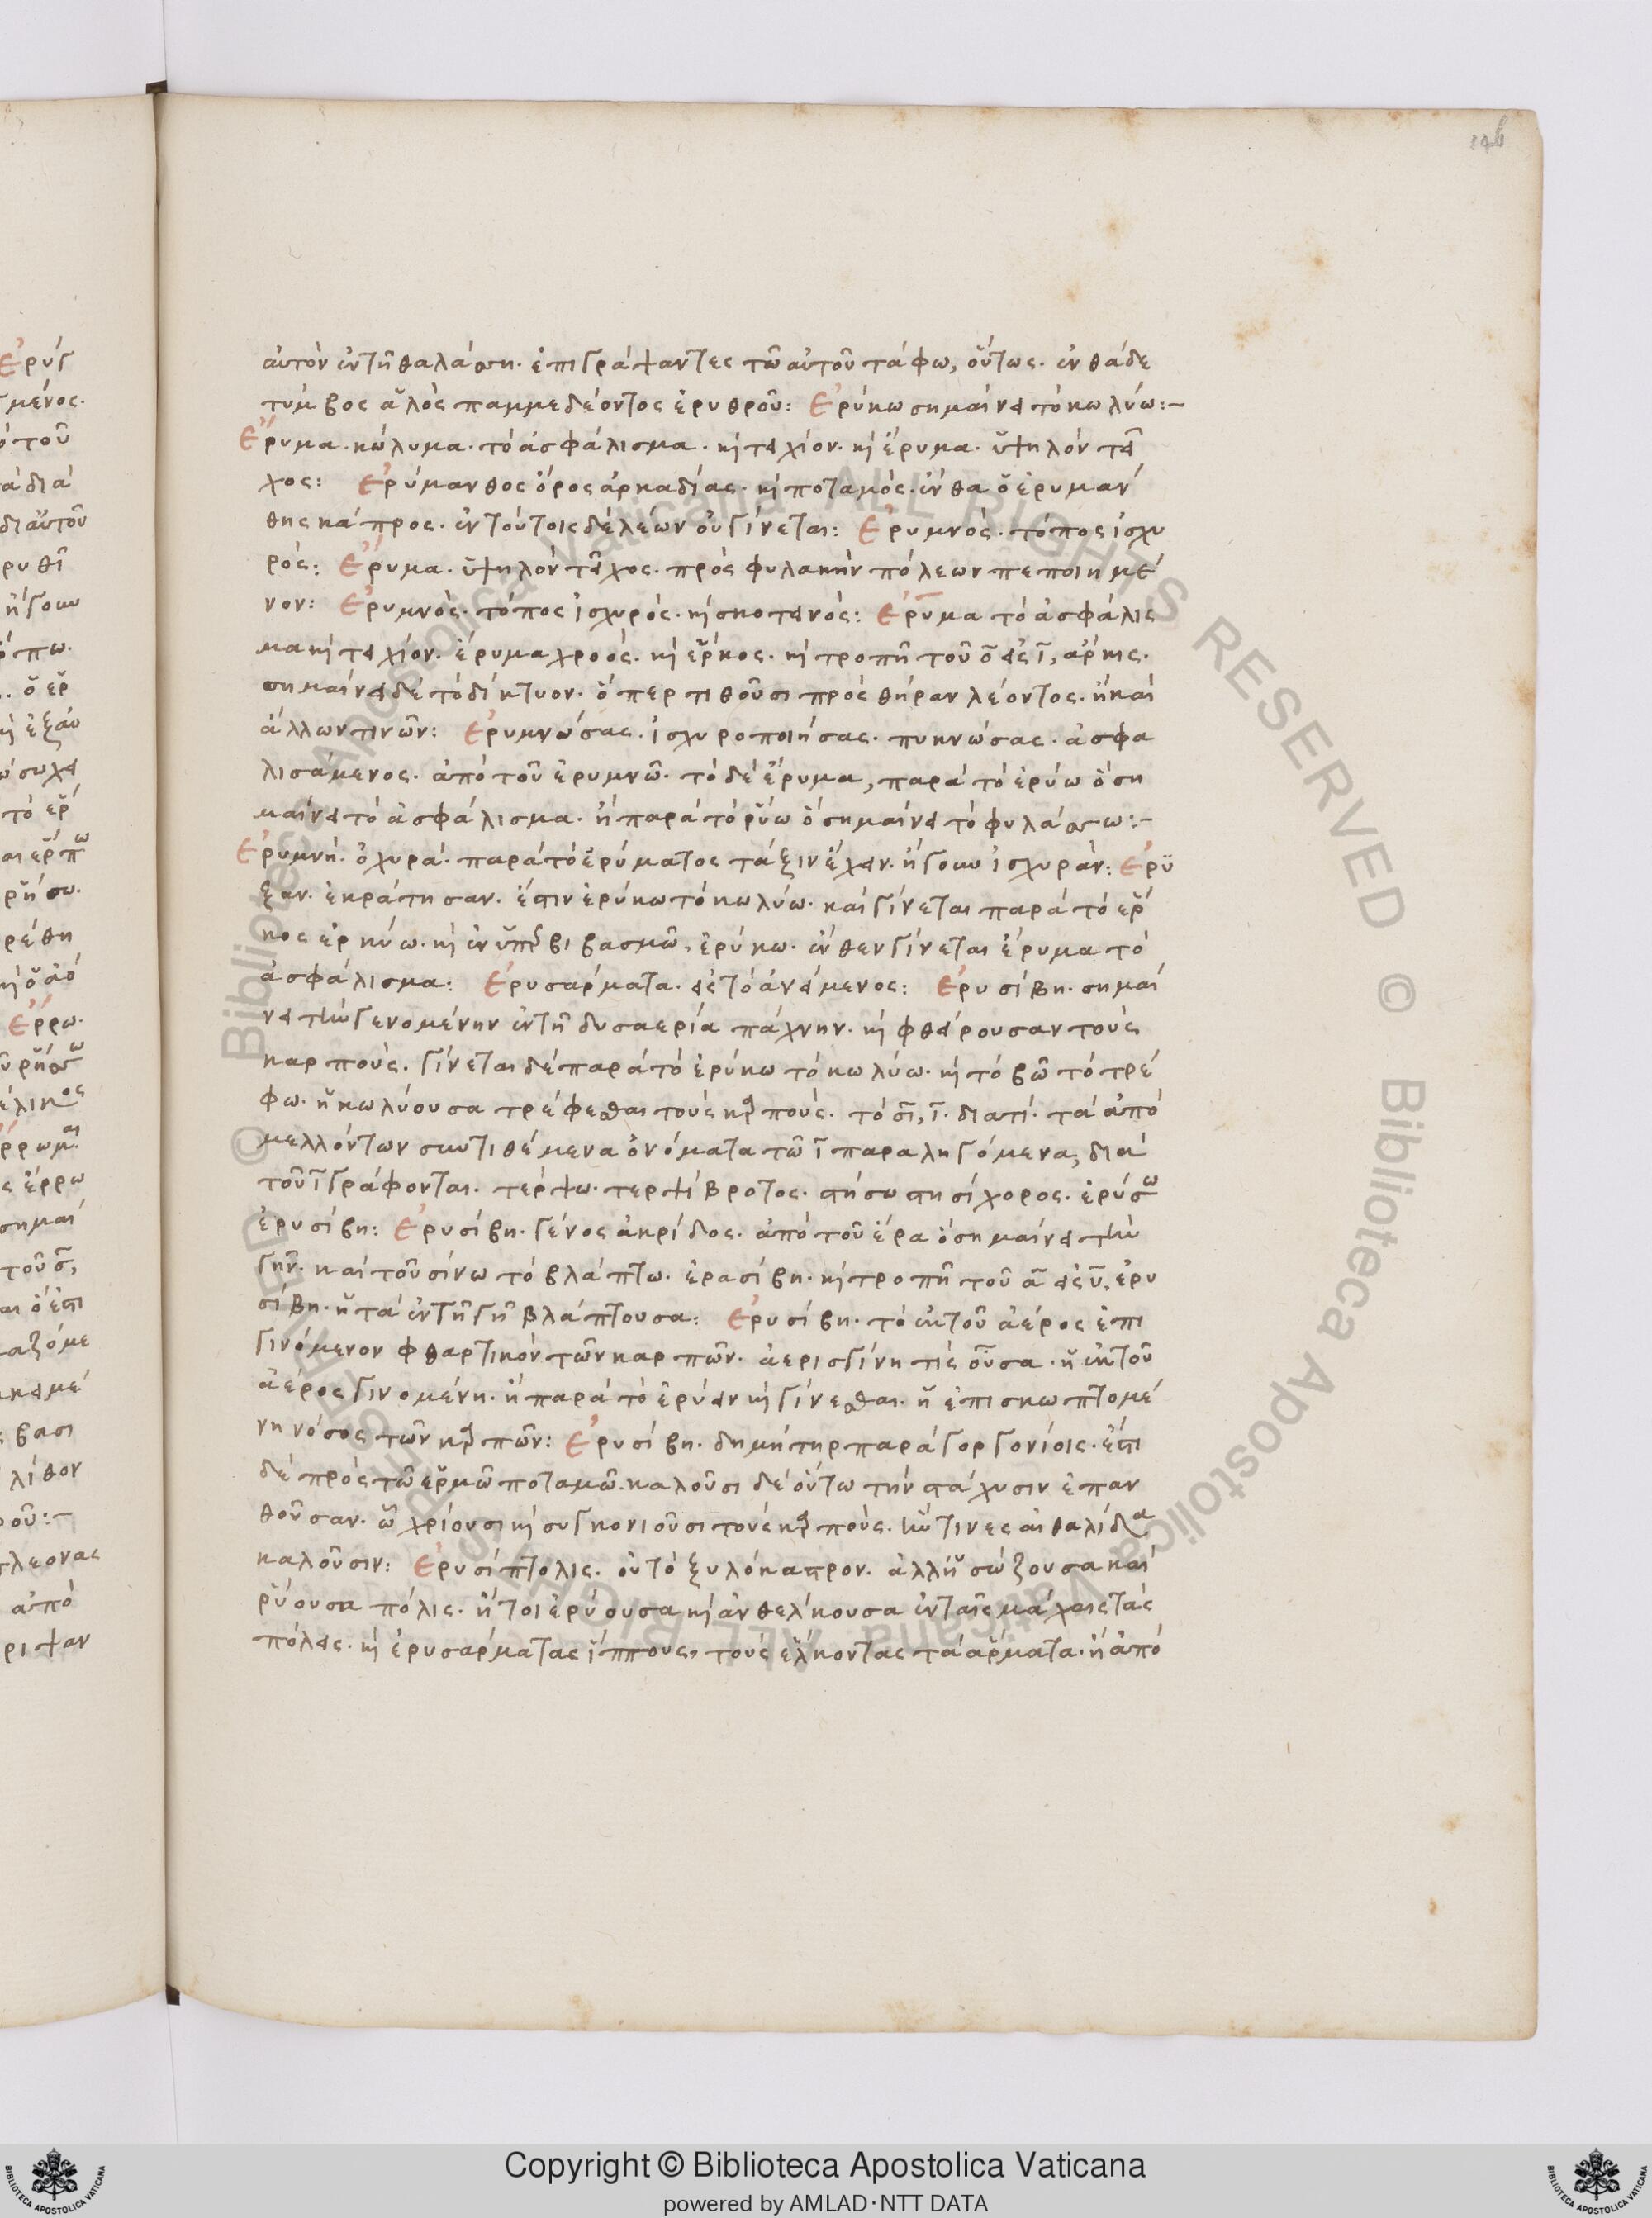 146
αὐτὸν ἐν τῆ θαλάσση. ἐπιγράψαντες τῶ αὐτοῦ τάφω, οὕτως. ἐνθάδε
τύμβος ἁλὸς παμμεδέοντος ἐρυθροῦ: Ἐρύκω σημαίνει τὸ κωλύω:-
Ἔρυμα. κώλυμα. τὸ ἀσφάλισμα. καὶ τειχίον. καὶ ἔρυμα. ὑψηλὸν τεῖ
χος: Ἐρύμανθος ὄρος ἀρκαδίας. καὶ ποταμὸς. ἔνθα ὁ ἐρυμάν
θης κάπρος. ἐν τούτοις δὲ λέων οὐ γίνεται: Ἐρυμνὸς. τόπος ἰσχυ
ρός: Ἔρυμα. ὑψηλὸν τεῖχος. πρὸς φυλακὴν πόλεων πεποιημέ
νον: Ἐρυμνὸς. τόπος ἰσχυρός. καὶ σκοτεινός: Ἔρυμα τὸ ἀσφάλισ
μα καὶ τειχίον. ἔρυμα χροός. καὶ ἕρκος. καὶ τροπῆ τοῦ ο εἰς ι, ἄρκις.
σημαίνει δὲ τὸ δίκτυον. ὅπερ τιθοῦσι πρὸς θήραν λέοντος. ἢ καὶ
ἄλλων τινῶν: Ἐρυμνώσας. ἰσχυροποιήσας. πυκνώσας. ἀσφα
λισάμενος. ἀπὸ τοῦ ἐρυμνῶ. τὸ δὲ ἔρυμα, παρὰ τὸ ἐρύω ὃ ση
μαίνει τὸ ἀσφάλισμα. ἢ παρὰ τὸ ῥύω ὃ σημαίνει τὸ φυλάσσω:-
Ἐρυμνή. ὀχυρά. παρὰ τὸ ἐρύματος τάξιν ἔχειν. ἤγουν ἰσχυράν: Ἐρύ
ξαν. ἐκράτησαν. ἔστιν ἐρύκω τὸ κωλύω. καὶ γίνεται παρὰ τὸ ἕρ
κος ἑρκύω. καὶ ἐν ὑπερβιβασμῶ, ἐρύκω. ἔνθεν γίνεται ἔρυμα τὸ
ἀσφάλισμα: Ἐρυσάρματα. εἰς τὸ ἀνάμενος: Ἐρυσίβη. σημαί
νει τὴν γενομένην ἐν τῆ δυσαερία πάχνην. καὶ φθείρουσαν τοὺς
καρπούς. γίνεται δὲ παρὰ τὸ ἐρύκω τὸ κωλύω. καὶ τὸ βῶ τὸ τρέ
φω. ἡ κωλύουσα τρέφεσθαι τοὺς καρπούς. τὸ σι, ι. διατί. τὰ ἀπὸ
μελλόντων συντιθέμενα ὀνόματα τῶ ι παραληγόμενα, διὰ
τοῦ ι γράφονται. τέρψω. τερψίβροτος. στήσω στησίχορος. ἐρύσω
ἐρυσίβη: Ἐρυσίβη. γένος ἀκρίδος. ἀπὸ τοῦ ἔρα ὃ σημαίνει τὴν
γῆν. καὶ τοῦ σίνω τὸ βλάπτω. ἐρασίβη. καὶ τροπῆ τοῦ α εἰς υ, ἐρυ
σίβη. ἡ τὰ ἐν τῆ γῆ βλάπτουσα: Ἐρυσίβη. τὸ ἐκ τοῦ ἀέρος ἐπι
γινόμενον φθαρτικὸν τῶν καρπῶν. ἀερισγίνη τὶς οὖσα. ἡ ἐκ τοῦ
ἀέρος γινομένη. ἢ παρὰ τὸ ἐρύειν καὶ γίνεσθαι. ἡ ἐπισκωπτομέ
νη νόσος τῶν καρπῶν: Ἐρυσίβη. δημήτηρ παρὰ γοργονίοις. ἔστι
δὲ πρὸς τῶ ἕρμω ποταμῶ. καλοῦσι δὲ οὕτω τὴν στάχυσιν ἐπαν
θοῦσαν. ὧ χρίουσι καὶ συγκονιοῦσι τοὺς καρπούς. ἥν τινες αἰθαλίδα
καλοῦσιν: Ἐρυσίπτολις. οὐ τὸ ξυλόκαστρον. ἀλλ' ἡ σώζουσα καὶ
ῥύουσα πόλις. ἤτοι ἐρύουσα καὶ ἀνθέλκουσα ἐν ταῖς μάχαις τὰς
πόλεις. καὶ ἐρυσάρματας ἵππους, τοὺς ἕλκοντας τὰ ἅρματα. ἢ ἀπὸ
Copyright © Biblioteca Apostolica Vaticana
powered by AMLAD·NTT DATA